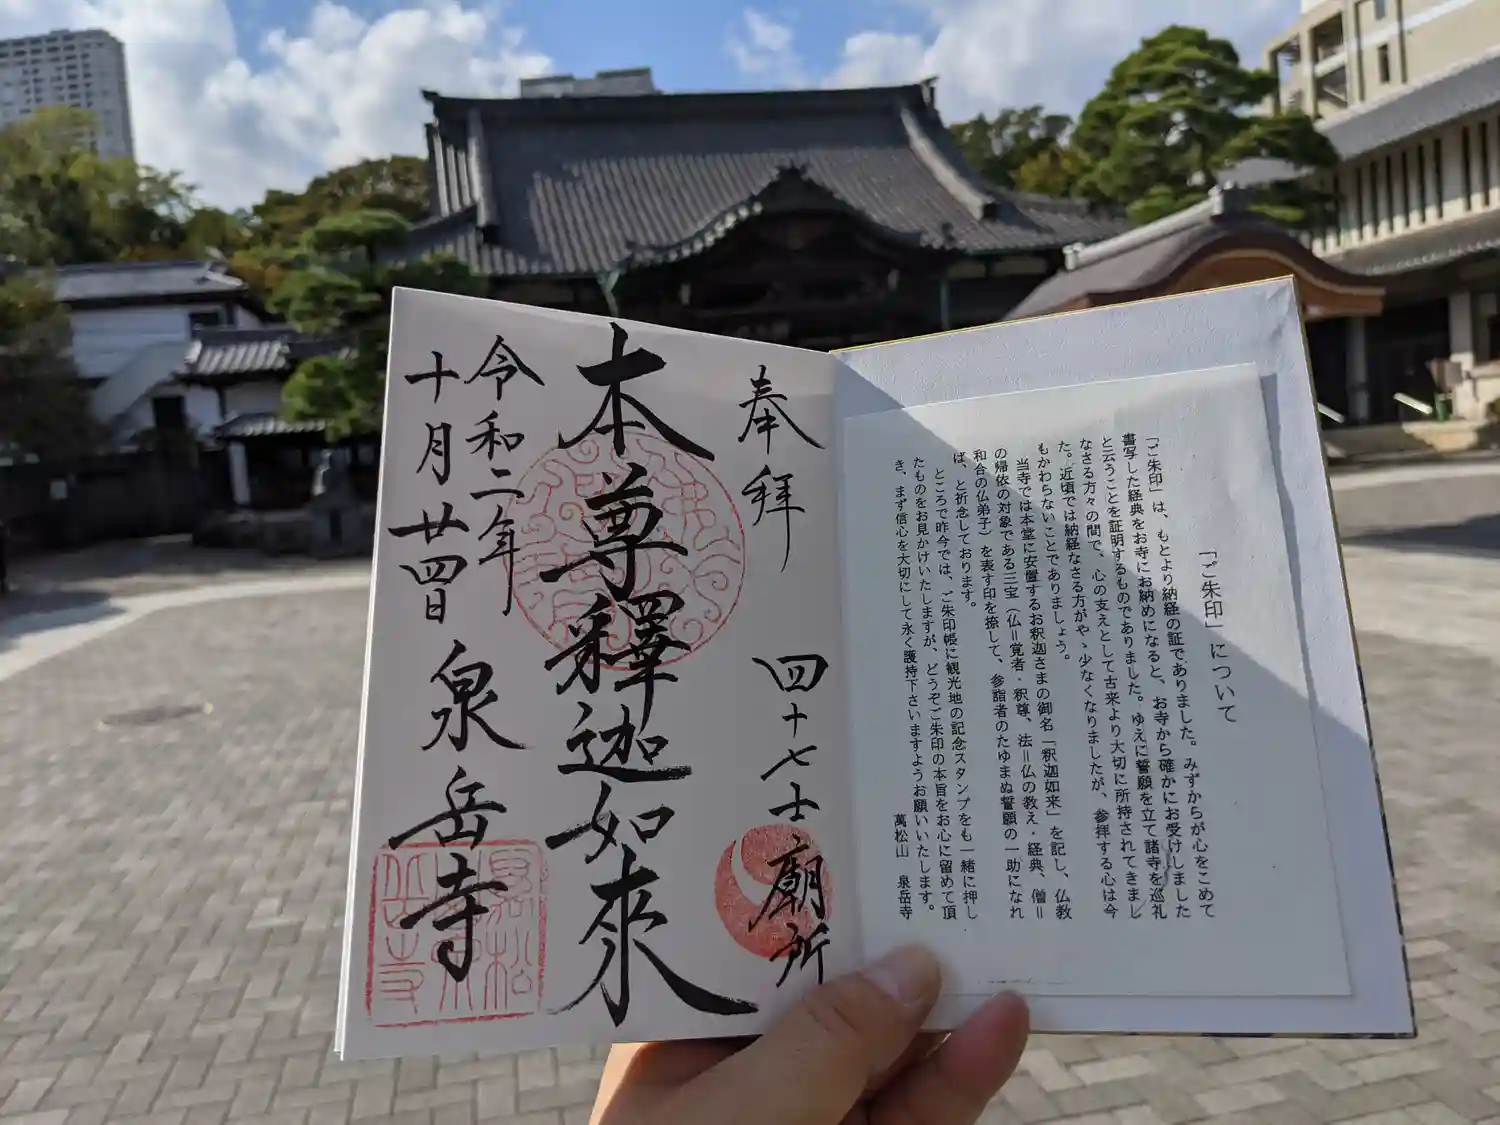 奉拝
四十七士廟所
本尊釋迦如來
令和二年
十月廿四日
泉岳寺
「ご朱印」について
「ご朱印」は、もとより納経の証でありました。みずからが心をこめて
書写した経典をお寺にお納めになると、お寺から確かにお受けしました
と云うことを証明するものでありました。ゆえに誓願を立て諸寺を巡礼
なさる方々の間で、心の支えとして古来より大切に所持されてきまし
た。近頃では納経なさる方がやゝ少なくなりましたが、参拝する心は今
もかわらないことでありましょう。
当寺では本堂に安置するお釈迦さまの御名「釈迦如来」を記し、仏教
の帰依の対象である三宝（仏＝覚者・釈尊、法＝仏の教え・経典、僧＝
和合の仏弟子）を表す印を捺して、参詣者のたゆまぬ誓願の一助になれ
ば、と祈念しております。
ところで昨今では、ご朱印帳に観光地の記念スタンプをも一緒に押し
たものをお見かけいたしますが、どうぞご朱印の本旨をお心に留めて頂
き、まず信心を大切にして永く護持下さいますようお願いいたします。
萬松山 泉岳寺